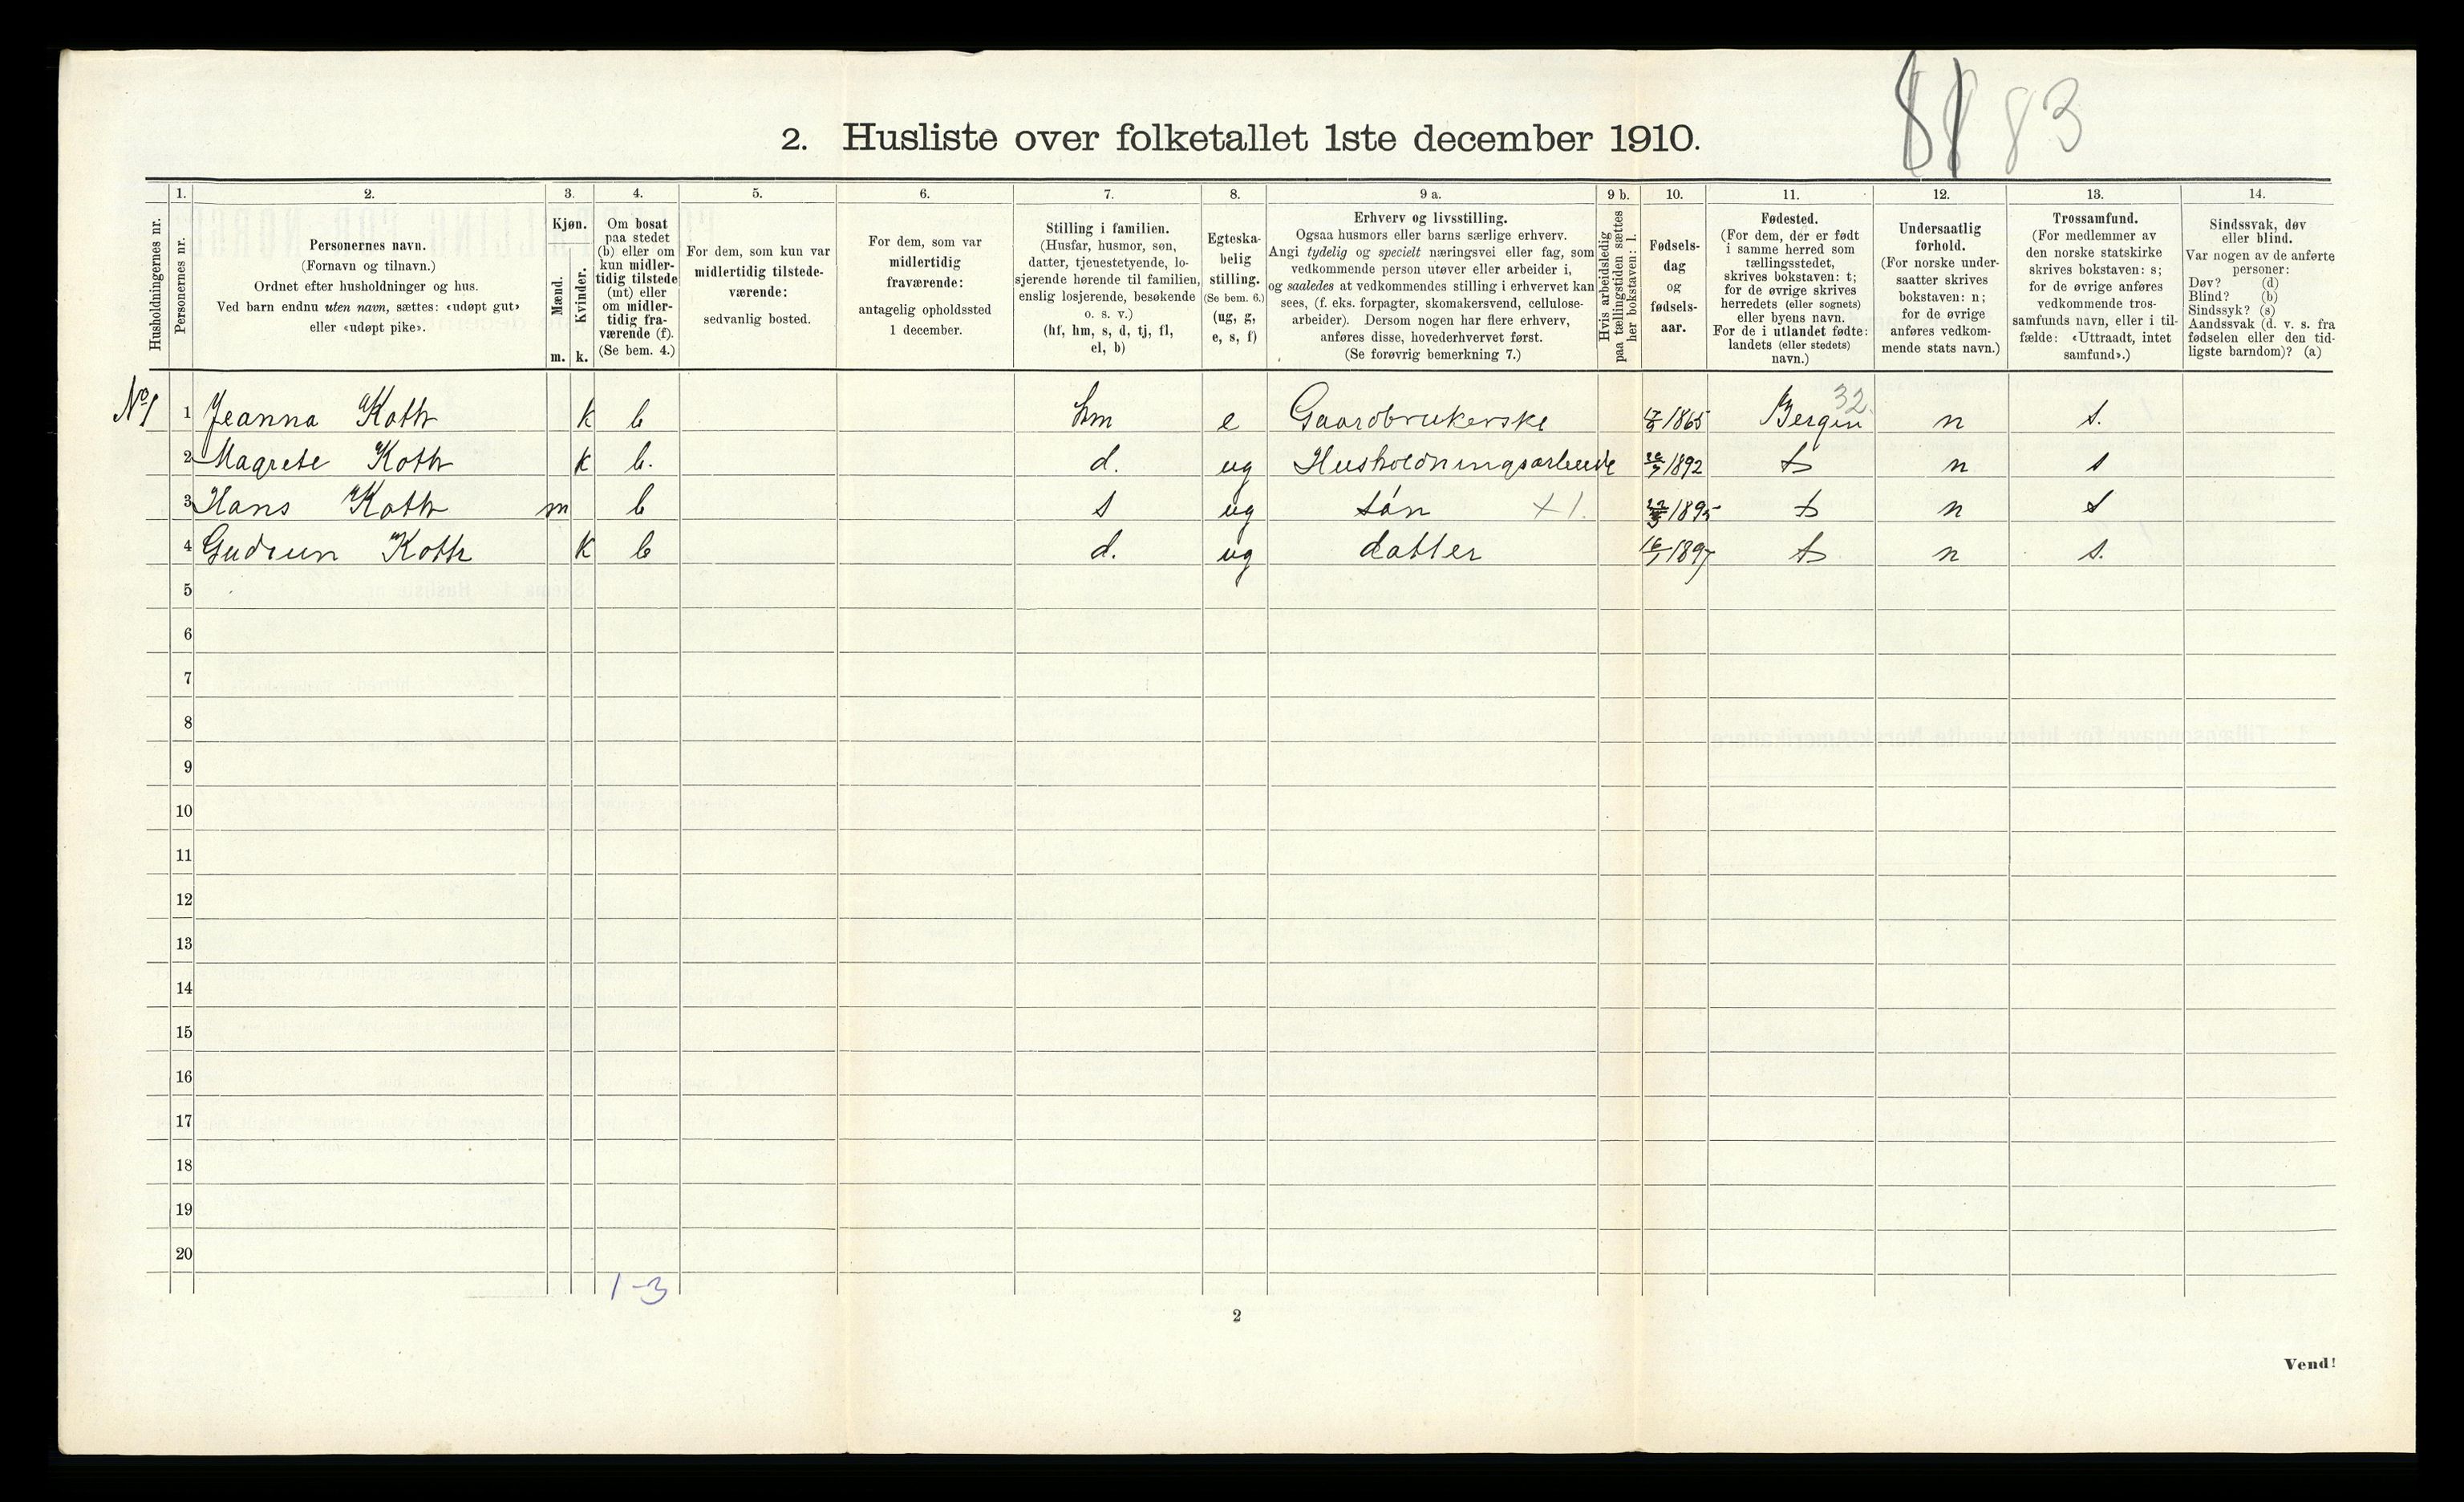 81 83
2. Husliste over folketallet 1ste december 1910.
Husholdningernes nr.
1.
Personernes nr.
2.
Personernes navn.
(Fornavn og tilnavn.)
Ordnet efter husholdninger og hus.
Ved barn endnu uten navn, sættes: «udøpt gut»
eller «udøpt pike».
3.
Kjøn.
Mænd.
Kvinder.
m. k.
4.
Om bosat
paa stedet
(b) eller om
kun midler-
tidig tilstede
(mt) eller
om midler-
tidig fra-
værende (f).
(Se bem. 4.)
5.
For dem, som kun var
midlertidig tilstede-
værende:
sedvanlig bosted.
6.
For dem, som var
midlertidig
fraværende:
antagelig opholdssted
1 december.
7.
Stilling i familien.
(Husfar, husmor, søn,
datter, tjenestetyende, lo-
sjerende hørende til familien,
enslig losjerende, besøkende
o. s. v.)
(hf, hm, s, d, tj, fl,
el, b)
8.
Egteska-
belig
stilling.
(Se bem. 6.)
(ug, g,
e, s, f)
9 a.
Erhverv og livsstilling.
Ogsaa husmors eller barns særlige erhverv.
Angi tydelig og specielt næringsvei eller fag, som
vedkommende person utøver eller arbeider i,
og saaledes at vedkommendes stilling i erhvervet kan
sees, (f. eks. forpagter, skomakersvend, cellulose-
arbeider). Dersom nogen har flere erhverv,
anføres disse, hovederhvervet først.
(Se forøvrig bemerkning 7.)
9 b.
Hvis arbeidsledig
paa tællingstiden sættes
her bokstaven: l.
10.
Fødsels-
dag
og
fødsels-
aar.
11.
Fødested.
(For dem, der er født
i samme herred som
tællingsstedet,
skrives bokstaven: t;
for de øvrige skrives
herredets (eller sognets)
eller byens navn.
For de i utlandet fødte:
landets (eller stedets)
navn.)
12.
Undersaatlig
forhold.
(For norske under-
saatter skrives
bokstaven: n;
for de øvrige
anføres vedkom-
mende stats navn.)
13.
Trossamfund.
(For medlemmer av
den norske statskirke
skrives bokstaven: s;
for de øvrige anføres
vedkommende tros-
samfunds navn, eller i til-
fælde: «Uttraadt, intet
samfund».)
14.
Sindssvak, døv
eller blind.
Var nogen av de anførte
personer:
Døv? (d)
Blind? (b)
Sindssyk? (s)
Aandssvak (d. v. s. fra
fødselen eller den tid-
ligste barndom)? (a)
32.
No 1 1 Jeanna Koth k b hm e Gaardbrukerske 1865 Bergen n s.
2 Magrete Koth k b. d. ug Husholdningsarbeide 1892 t n s
3 Hans Koth m b s ug søn x 1. 1895 t n s
4 Gudrun Koth k b d. ug datter 16/7 1897 t n s.
5
6
7
8
9
10
11
12
13
14
15
16
17
18
19
20
1-3
2
Vend!